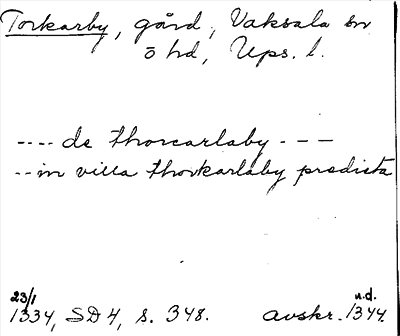 Torkarby, gård, Vaksala sn
ö hd, Ups. l.
---- de thorcarlaby - - -
-- in villa thorkarlaby predicta
23/1
1334, SD 4, s. 348.
n.d.
avskr. 1344.